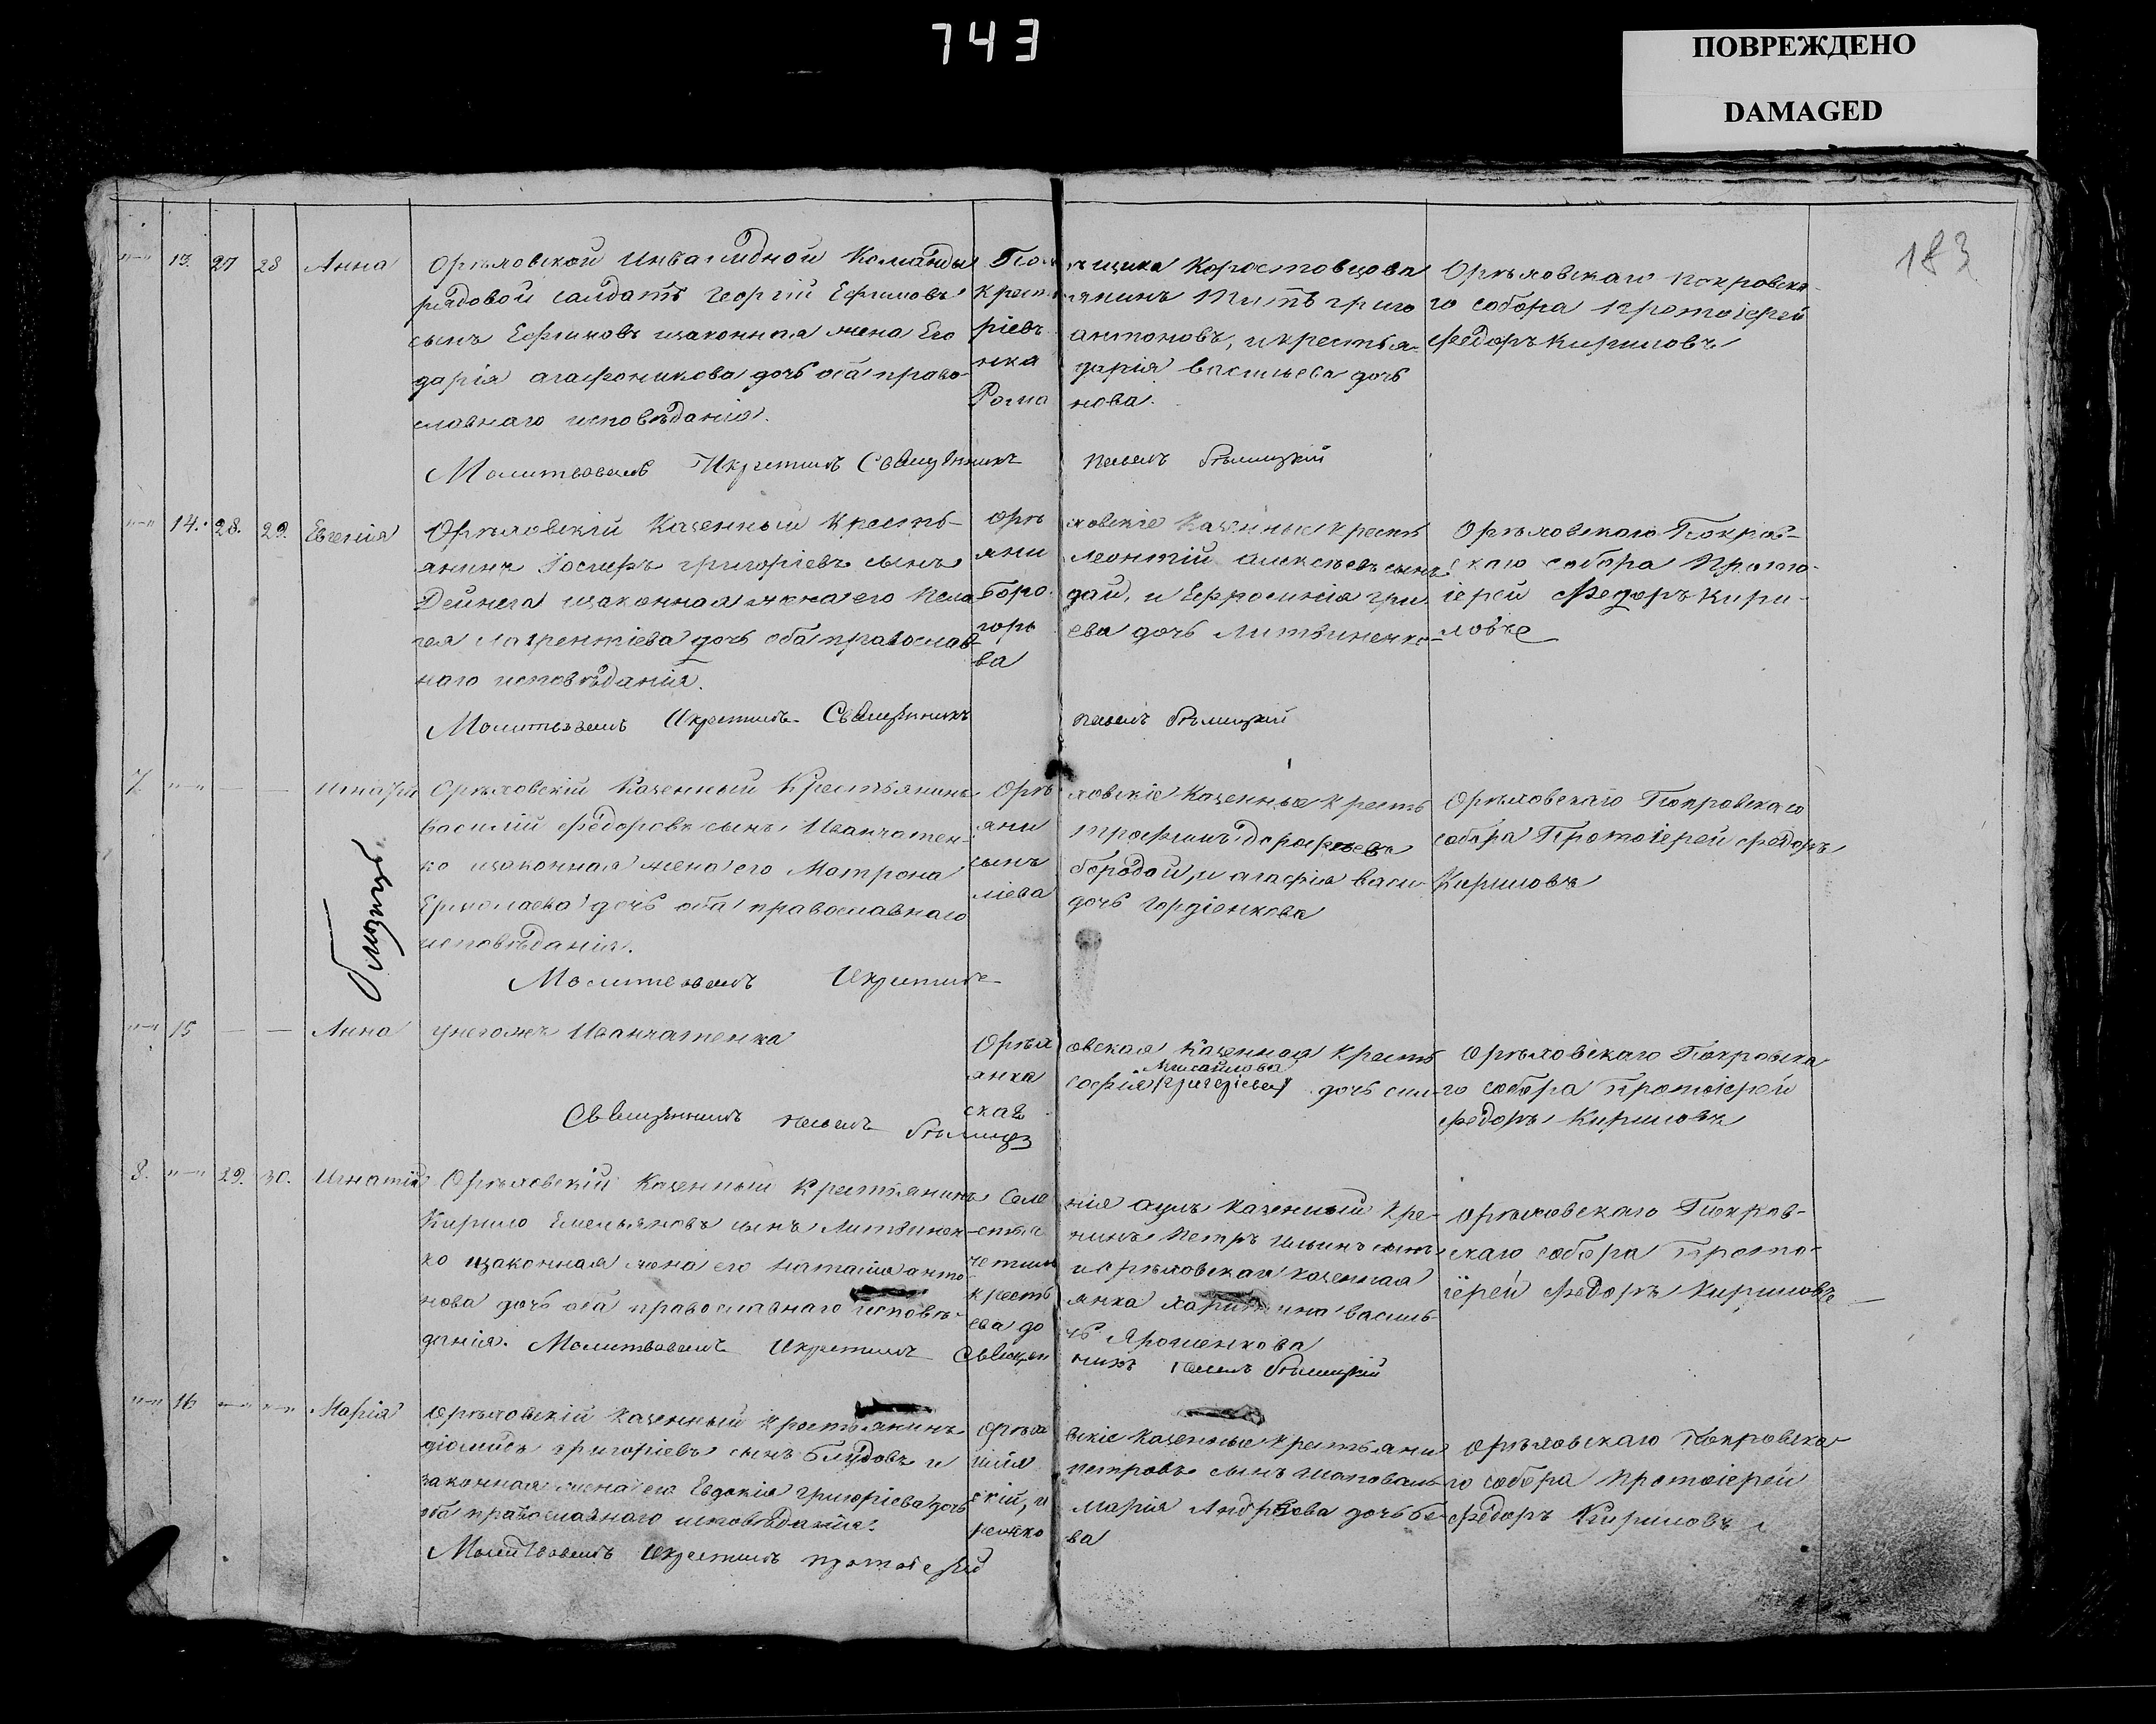 743
ПОВРЕЖДЕНО
DAMAGED
183
13. 27 28 Анна
Орѣховской Инвалидной Команды
рядовой солдатъ Георгій Ефимовъ
сынъ Ефимовъ изаконная жена Его
дарія агафоникова дочь оба право-
славнаго исповѣданія.
Молитвовалъ Икрестилъ Священникъ Павелъ
помѣщика Коростовцова
крестьянинъ Титъ григо
ріевъ антоновъ, и крестья-
нка дарія васильева дочь
Романова.
Орѣховскаго покровска-
го собора протоіерей
Федоръ Кириловъ
14. 28. 29. Евгенія
Орѣховскій Казенный Кресть-
янинъ Іосифъ григоріевъ сынъ
Дейнега изаконная жена его Пела
гея лаврентіева дочь оба православ-
наго исповѣданія.
Молитвовалъ Икрестилъ Священникъ
Павелъ
Орѣховскіе Казенные кресть
яни леонтій алексѣевъ сынъ
Бородай, и Ефросинія гри
горьева дочь Литвиненко-
ва
Орѣховскаго Покров-
скаго собора Прото-
іерей Федоръ Кири-
ловъ
7.
Орѣховскій Казенный Крестьянинъ
Василій Федоровъ сынъ Иванчатен-
ко изаконная жена его Матрона
Ермолаева дочь оба православнаго
исповѣданія.
Молитвовалъ Икрестилъ
Близнцы.
Орѣховскіе Казенные кресть
яни трофимъ дорофеевъ
сынъ бородай, и агафія васи-
ліева дочь Гордіенкова
Орѣховскаго Покровскаго
собора Протоіерей Федоръ
Кириловъ
15 Анна
унегожъ Иванчатенка
Священникъ Павелъ
Орѣховская Казенная Кресть
янка софія Михайлова дочь
ская
Орѣховскаго Покровска
го собора Протоіерей
Федоръ Кириловъ
8. 29. 30. Игнатій
Орѣховскій Казенный Крестьянинъ
Кирило Емельяновъ сынъ Литвинен-
ко изаконная жена его Наталія анто
нова дочь оба православнаго исповѣ-
данія. Молитвовалъ Икрестилъ Священ
никъ Павелъ
Казенный Кре-
стьянинъ Петръ Ильинъ сынъ
и Орѣховская казенная
кресть янка Харитина василь-
ева дочь Ярошенкова
Орѣховскаго Покров-
скаго собора Прото-
іерей Федоръ Кириловъ
16 Марія
Орѣховскій Казенный Крестьянинъ
григоріевъ сынъ Блудовъ и
законная жена его Евдокія григоріева дочь
оба православнаго исповѣданія.
Молитвовалъ Икрестилъ протоіерей
Орѣховскіе Казенные крестьяни
петровъ сынъ Шаповаль
скій, и Марія Андрѣева дочь Бе
режко ва
Орѣховскаго Покровска
го собора Протоіерей
Федоръ Кириловъ